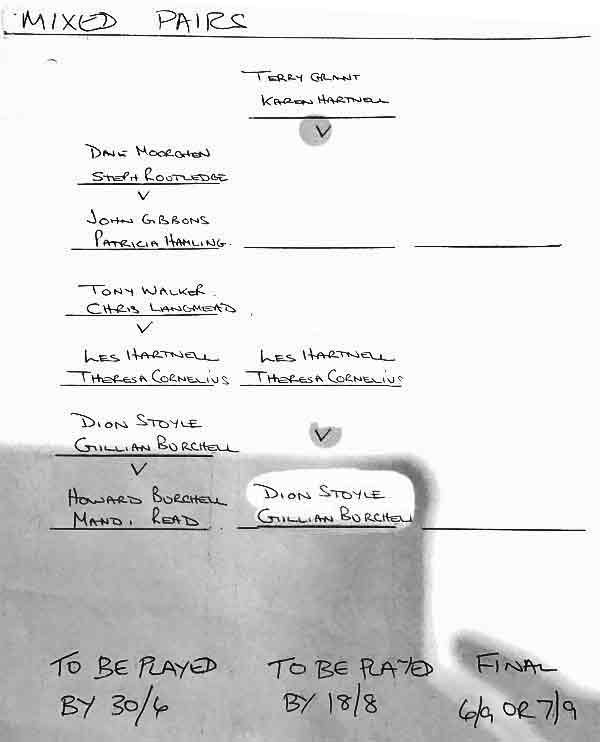 MIXED PAIRS
TERRY GRANT
KAREN HARTNELL
V
DAVE MOORCHEN
STEPH ROUTLEDGE
V
JOHN GIBBONS
PATRICIA HAMLING.
TONY WALKER.
CHRIS LANGMEAD
V
LES HARTNELL
THERESA CORNELIUS
LES HARTNELL
THERESA CORNELIUS
V
DION STOYLE
GILLIAN BURCHELL
V
HOWARD BURCHELL
MANDI READ
DION STOYLE
GILLIAN BURCHELL
TO BE PLAYED
BY 30/6
TO BE PLAYED
BY 18/8
FINAL
6/9 OR 7/9